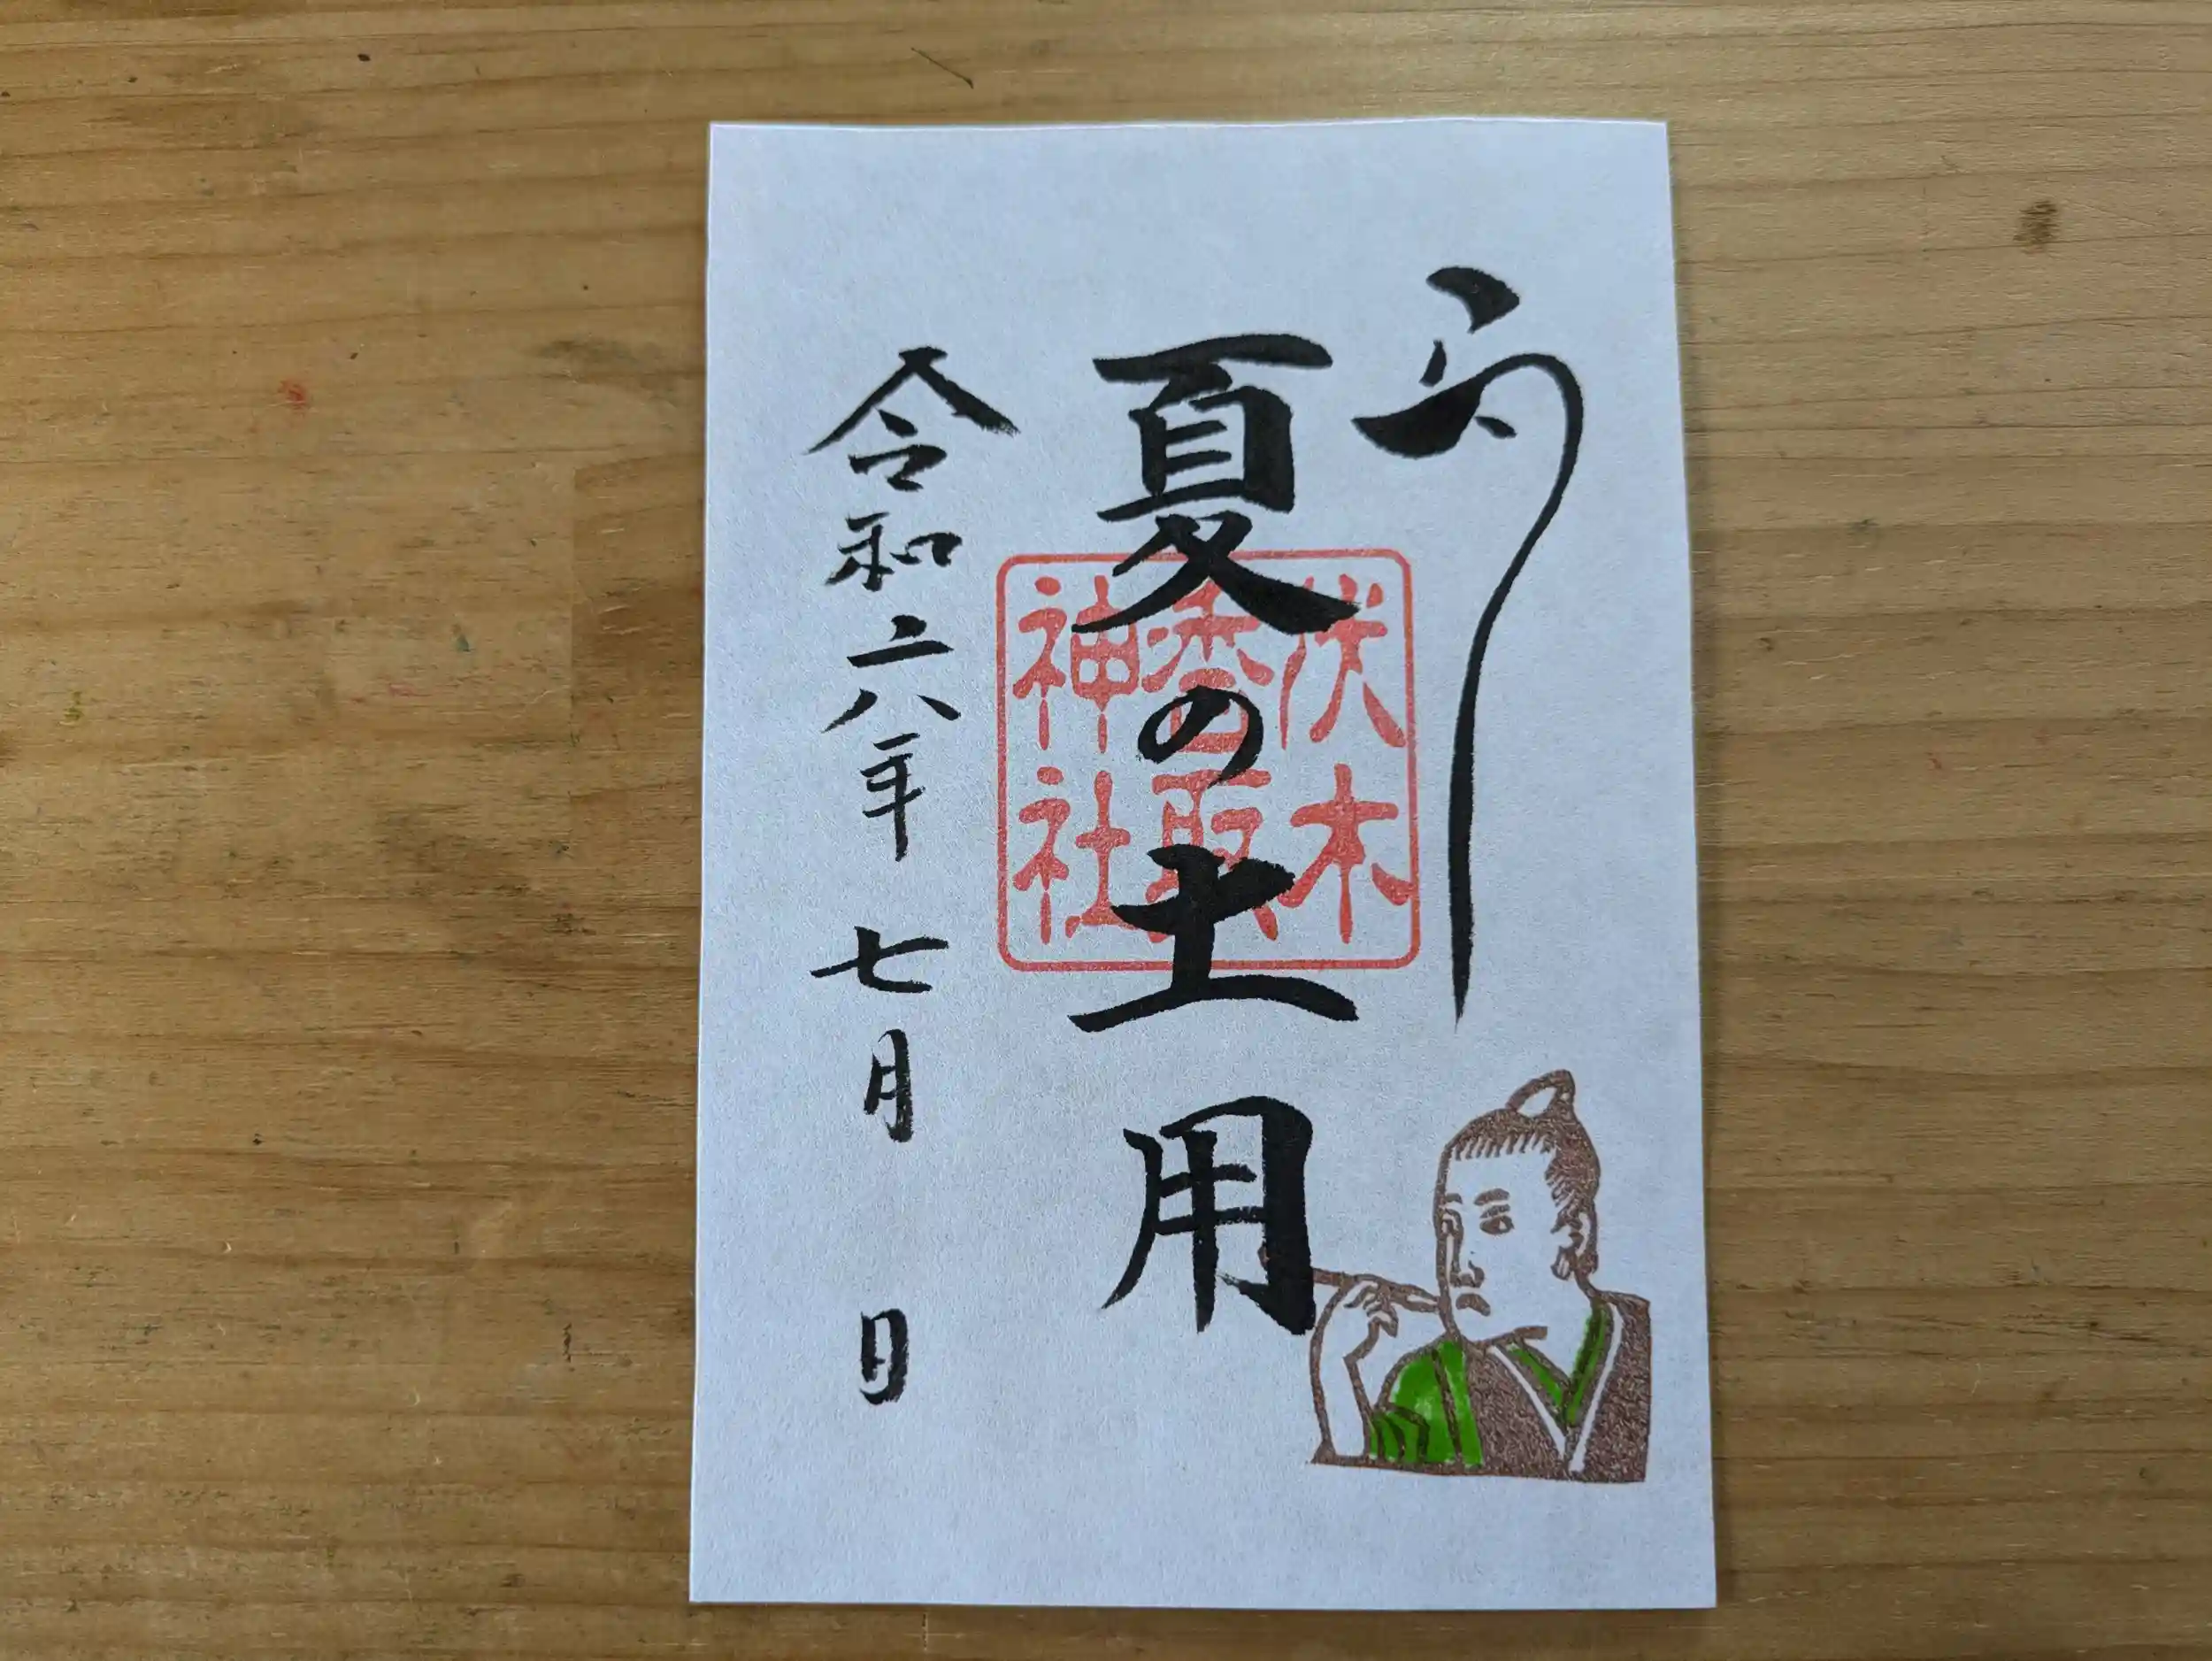 う
夏の土用
令和六年 七月 日
伏木
香取
神社